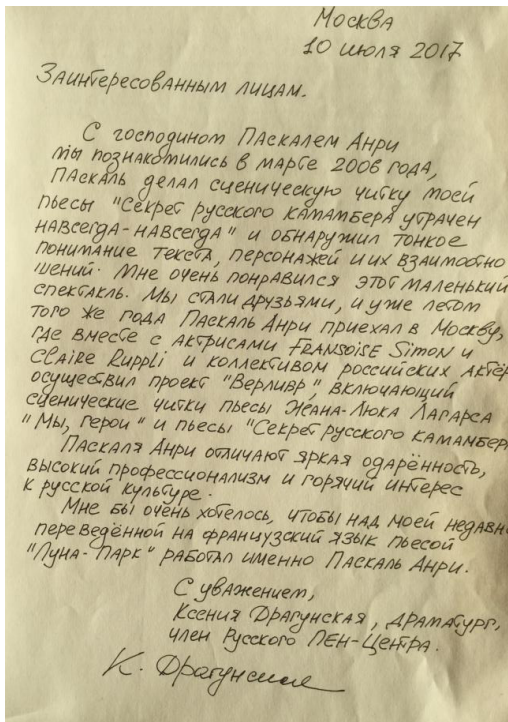 Москва
10 июля 2017
Заинтересованным лицам.
С господином Паскалем Анри
мы познакомились в марте 2006 года,
Паскаль делал сценическую читку моей
пьесы "Секрет русского камамбера утрачен
навсегда-навсегда" и обнаружил тонкое
понимание текста, персонажей и их взаимоотно
шений. Мне очень понравился этот маленький
спектакль. Мы стали друзьями, и уже летом
того же года Паскаль Анри приехал в Москву,
где вместе с актрисами Fransoise Simon и
Claire Ruppli и коллективом российских актёр
осуществил проект "Верливр", включающий
сценические читки пьесы Жана-Люка Лагарса
"Мы, герои" и пьесы "Секрет русского камамбер
Паскаля Анри отличают яркая одарённость,
высокий профессионализм и горячий интерес
к русской культуре.
Мне бы очень хотелось, чтобы над моей недавн
переведённой на французский язык пьесой
"Луна-Парк" работал именно Паскаль Анри.
С уважением,
Ксения Драгунская, драматург,
член Русского ПЕН-Центра.
К. Драгунская